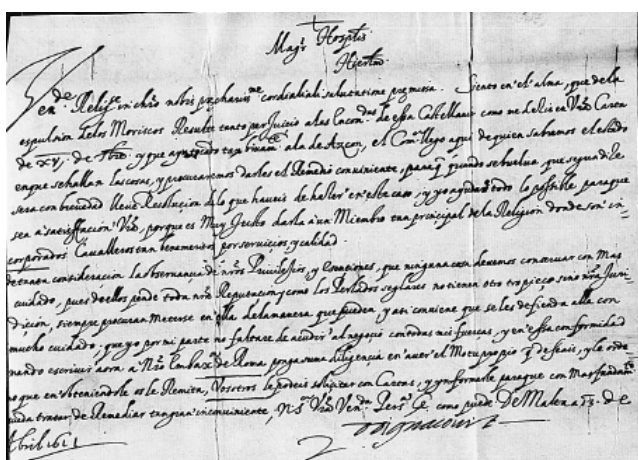 Mag.r Hosp.lis
Ven.de Relig.se in chro nobis præcharis.me cordialiali salutatione præmissa. Siento en el alma, que de la
espulsion de los Moriscos Resulte tanto perjuicio a las Encom.das de essa Castellania como me decis en V.ra Carta
de xxvj. de y que aya tocado tan bivam.te a la de Azcon, el Com.r llego aqui de quien sabremos el estado
en que se hallan las cosas, y procuraremos darles el Remedio conviniente, para q. quando se buelva, que segun dize
sera con brevedad lleve Resolucion de lo que haveis de hazer en este caso, y yo ayudare todo lo possible, para que
sea a satisffacion V.ra, porque es Muy Justo darla a un Miembro tan principal de la Religion donde son in-
corporados Cavalleros tan benemeritos por servicios, y calidad.
consideracion la observança de n.ros Privilegios, y Esenciones, que ninguna cosa devemos conservar con Mas
cuidado, pues de ellos pende toda n.ra Reputacion, y como los Perlados seglares no tienen otro tropieço sino n.ra Juri-
dicion, siempre procuran Meterse en ella de la manera que pueden, y assi conviene que se les defienda alla con
mucho cuidado, que yo por mi parte no faltare de acudir al negocio con todas mis fuerças, y en essa conformidad
mando escrivir aora a N.ro Embax.or de Roma ponga suma diligencia en aver el Motu proprio q. deseais, y le orde-
no que en obteniendole os le Remita, Vosotros le podeis solicitar con Cartas, y ynformarle para que con Mas fundam.to
pueda tratar de Remediar tan gran inconviniente, N. S.r V.ras Ven.das Pers.s G.e como puede. De Malta a 13. de
Abril 1611